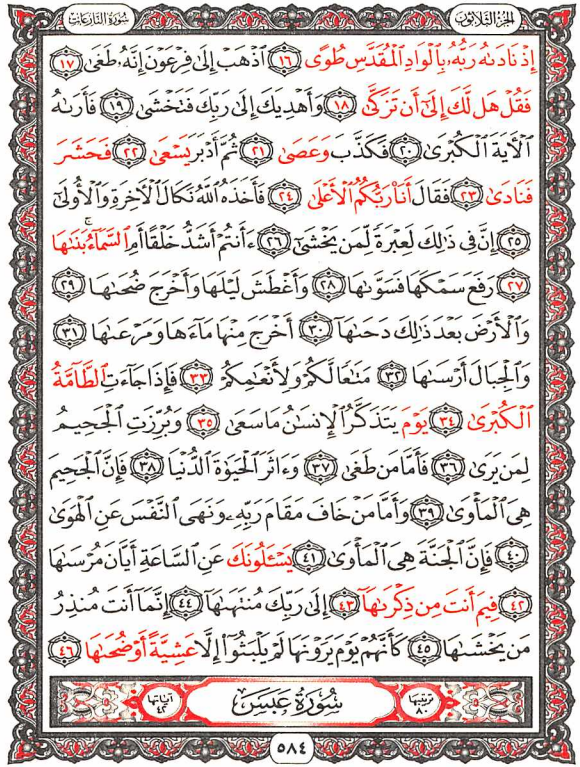 الجزء الثلاثون
سورة النازعات
إِذْ نَادَىٰهُ رَبُّهُۥ بِٱلْوَادِ ٱلْمُقَدَّسِ طُوًى ١٦ ٱذْهَبْ إِلَىٰ فِرْعَوْنَ إِنَّهُۥ طَغَىٰ ١٧
فَقُلْ هَل لَّكَ إِلَىٰٓ أَن تَزَكَّىٰ ١٨ وَأَهْدِيَكَ إِلَىٰ رَبِّكَ فَتَخْشَىٰ ١٩ فَأَرَىٰهُ
ٱلْءَايَةَ ٱلْكُبْرَىٰ ٢٠ فَكَذَّبَ وَعَصَىٰ ٢١ ثُمَّ أَدْبَرَ يَسْعَىٰ ٢٢ فَحَشَرَ
فَنَادَىٰ ٢٣ فَقَالَ أَنَا۠ رَبُّكُمُ ٱلْأَعْلَىٰ ٢٤ فَأَخَذَهُ ٱللَّهُ نَكَالَ ٱلْءَاخِرَةِ وَٱلْأُولَىٰٓ
٢٥ إِنَّ فِى ذَٰلِكَ لَعِبْرَةً لِّمَن يَخْشَىٰٓ ٢٦ ءَأَنتُمْ أَشَدُّ خَلْقًا أَمِ ٱلسَّمَآءُ ۚ بَنَىٰهَا
٢٧ رَفَعَ سَمْكَهَا فَسَوَّىٰهَا ٢٨ وَأَغْطَشَ لَيْلَهَا وَأَخْرَجَ ضُحَىٰهَا ٢٩
وَٱلْأَرْضَ بَعْدَ ذَٰلِكَ دَحَىٰهَآ ٣٠ أَخْرَجَ مِنْهَا مَآءَهَا وَمَرْعَىٰهَا ٣١
وَٱلْجِبَالَ أَرْسَىٰهَا ٣٢ مَتَٰعًا لَّكُمْ وَلِأَنْعَٰمِكُمْ ٣٣ فَإِذَا جَآءَتِ ٱلطَّآمَّةُ
ٱلْكُبْرَىٰ ٣٤ يَوْمَ يَتَذَكَّرُ ٱلْإِنسَٰنُ مَا سَعَىٰ ٣٥ وَبُرِّزَتِ ٱلْجَحِيمُ
لِمَن يَرَىٰ ٣٦ فَأَمَّا مَن طَغَىٰ ٣٧ وَءَاثَرَ ٱلْحَيَوٰةَ ٱلدُّنْيَا ٣٨ فَإِنَّ ٱلْجَحِيمَ
هِىَ ٱلْمَأْوَىٰ ٣٩ وَأَمَّا مَنْ خَافَ مَقَامَ رَبِّهِۦ وَنَهَى ٱلنَّفْسَ عَنِ ٱلْهَوَىٰ
٤٠ فَإِنَّ ٱلْجَنَّةَ هِىَ ٱلْمَأْوَىٰ ٤١ يَسْـَٔلُونَكَ عَنِ ٱلسَّاعَةِ أَيَّانَ مُرْسَىٰهَا
٤٢ فِيمَ أَنتَ مِن ذِكْرَىٰهَآ ٤٣ إِلَىٰ رَبِّكَ مُنتَهَىٰهَآ ٤٤ إِنَّمَآ أَنتَ مُنذِرُ
مَن يَخْشَىٰهَا ٤٥ كَأَنَّهُمْ يَوْمَ يَرَوْنَهَا لَمْ يَلْبَثُوٓا۟ إِلَّا عَشِيَّةً أَوْ ضُحَىٰهَا ٤٦
ترتيبها ٨٠ سُورَةُ عَبَسَ آياتها ٤٢
٥٨٤